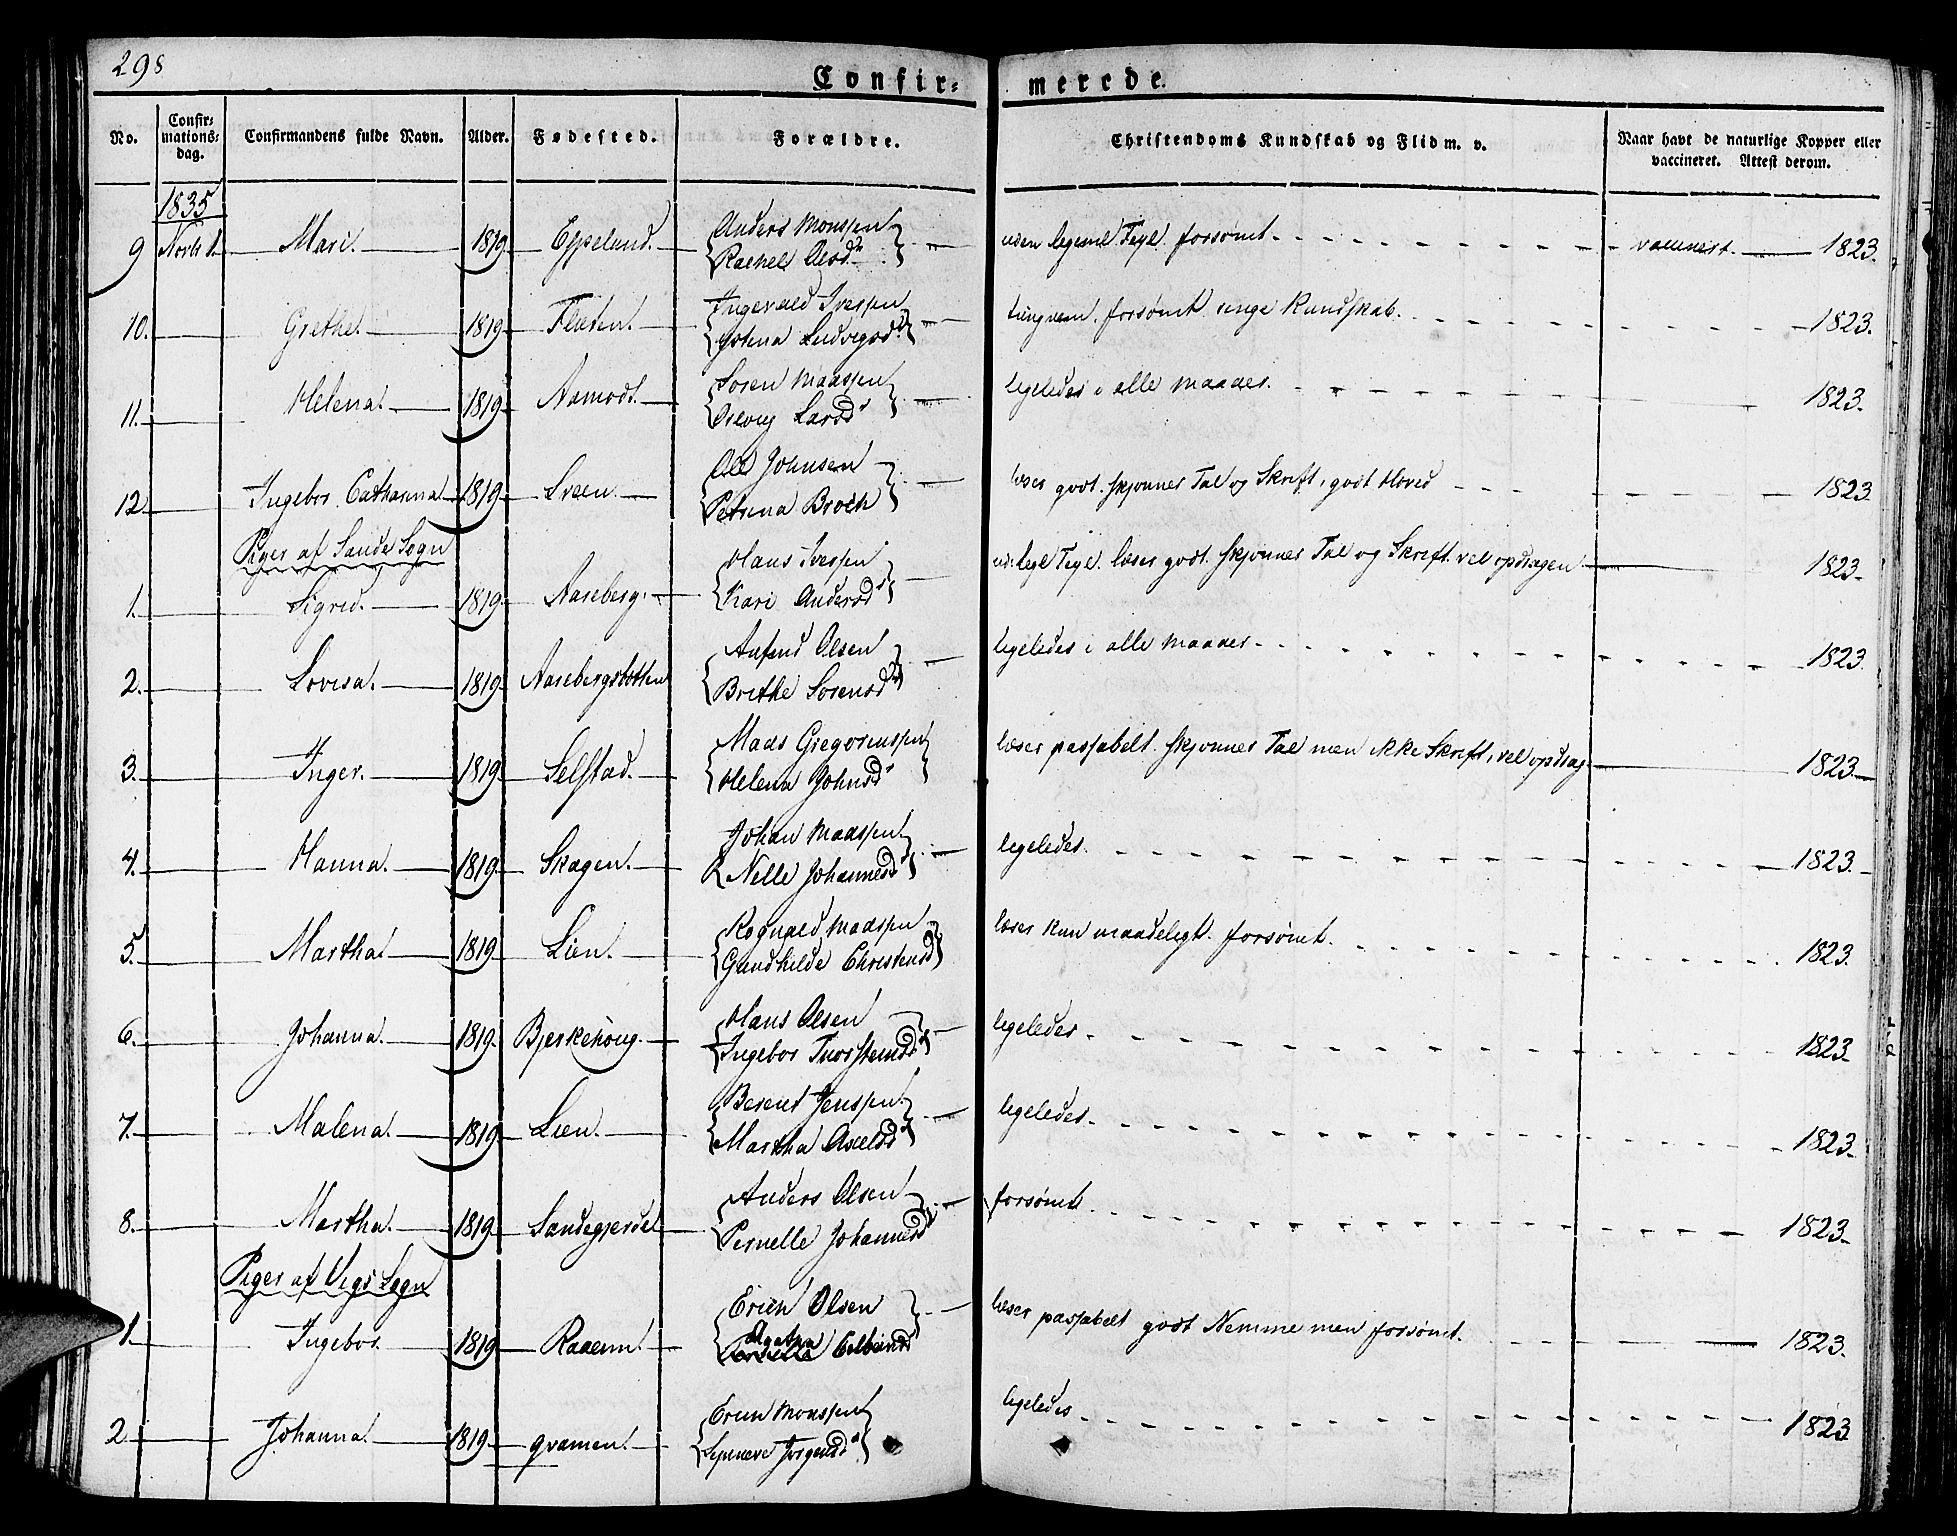 298
Confir= merede.
No. Confir-mations-dag. Confirmandens fulde Navn. Alder. Fødested. Forældre. Christendoms Kundskab og Flid m. v. Naar havt de naturlige Kopper eller vaccineret. Attest derom.
1835
9 Mari. 1819 Espeland. Anders Monssen Rachel Olsd uden legeml Feyl. forsømt vaccinert. 1823.
10. Grethe. 1819 Fladen. Ingevald Iverssen Ludvigsd tungnem. forsømt ringe Kundskab. 1823.
11. Helena. 1819 Aamodt. Søren Maassen Larsd ligeledes i alle maader. 1823.
12. Ingebor Catharina 1819 Sveen. Ole Johnsen Petrina Broch læser godt. skjønner Tal og Skrift, godt Hoved 1823.
Piger af Sande Sogn
1. Sigrid. 1819 Aaseberg. Hans Iverssen Kari Andersd ud: legl Feyl. læser godt. skjønner Tal og Skrift. vel opdragen. 1823.
2. Lovisa. 1819 Aasebergsbotten Anfind Olsen Brethe Sørensd ligeledes i alle maader 1823.
3. Inger. 1819 Selstad. Mads Gregoriussen Helena Johnsd læser passabelt. skjønner Tal men ikke Skrift, vel opdrag. 1823.
4. Hanna. 1819 Skagen. Johan Maassen Nille Johannesd ligeledes. 1823.
5. Martha 1819 Lien. Rognald Maassen Gundhilde Christensd læser kun maadeligt. forsømt. 1823.
6. Johanna. 1819. Bjerkehoug. Hans Olsen Ingebor Thorsteinsd ligeledes 1823.
7. Malena. 1819 Lien. Berent Jenssen Martha Axelsd ligeledes. 1823.
8. Martha. 1819 Sandegjerdet Anders Olsen Pernelle Johannesd forsømt 1823.
Piger af Vigs Sogn
1. Ingebor. 1819 Raaeim. Erich Olsen Agatha læser passabelt godt Nemme men forsømt. 1823.
2. Johanna. 1819 qvamen. Erich Monssen Synneve Jørgensd ligeledes 1823.